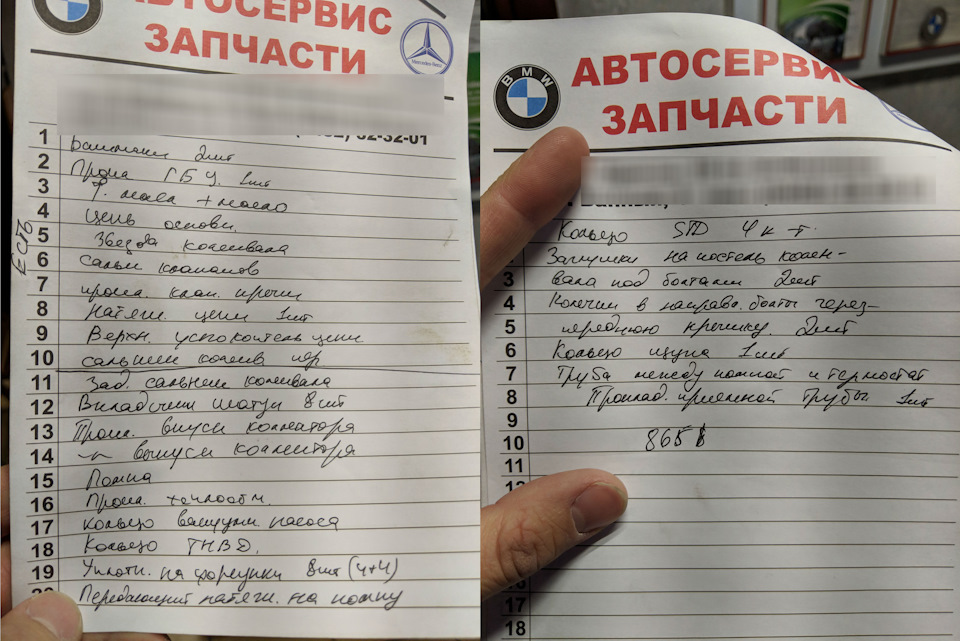 АВТОСЕРВИС
ЗАПЧАСТИ
Mercedes-Benz
32-32-01
ЕСТЬ
1 2шт
2 Прокл ГБЦ. 1шт
3 ф. масл + масло
4 цепь основн.
5 Звезда коленвала
6 сальн клапанов
7 прокл. клап. крышки
8 Натяж. цепи 1шт
9 Верхн. успокоитель цепи
10 сальник коленв пер
11 Зад. сальник коленвала
12 Вкладыши шатун 8шт
13 Прокл. впуск коллектора
14 –"– выпуск коллектора
15 Помпа
16 Прокл. теплообм.
17 кольцо вакуумн. насоса
18 Кольцо ТНВД.
19 Уплотн. на форсунки 8шт (4+4)
20 натяж. на помпу
BMW
АВТОСЕРВИС
ЗАПЧАСТИ
Кольцо STD 4 к-т.
Заглушки на постель колен-
3 вала под болтами 2шт
4 Колечки в направл. болты через
5 переднюю крышку. 2шт
6 Кольцо щупа 1шт
7 Труба между помпой и термостат
8 Проклад. приемной трубы 1шт
9
10 865
11
12
17
18